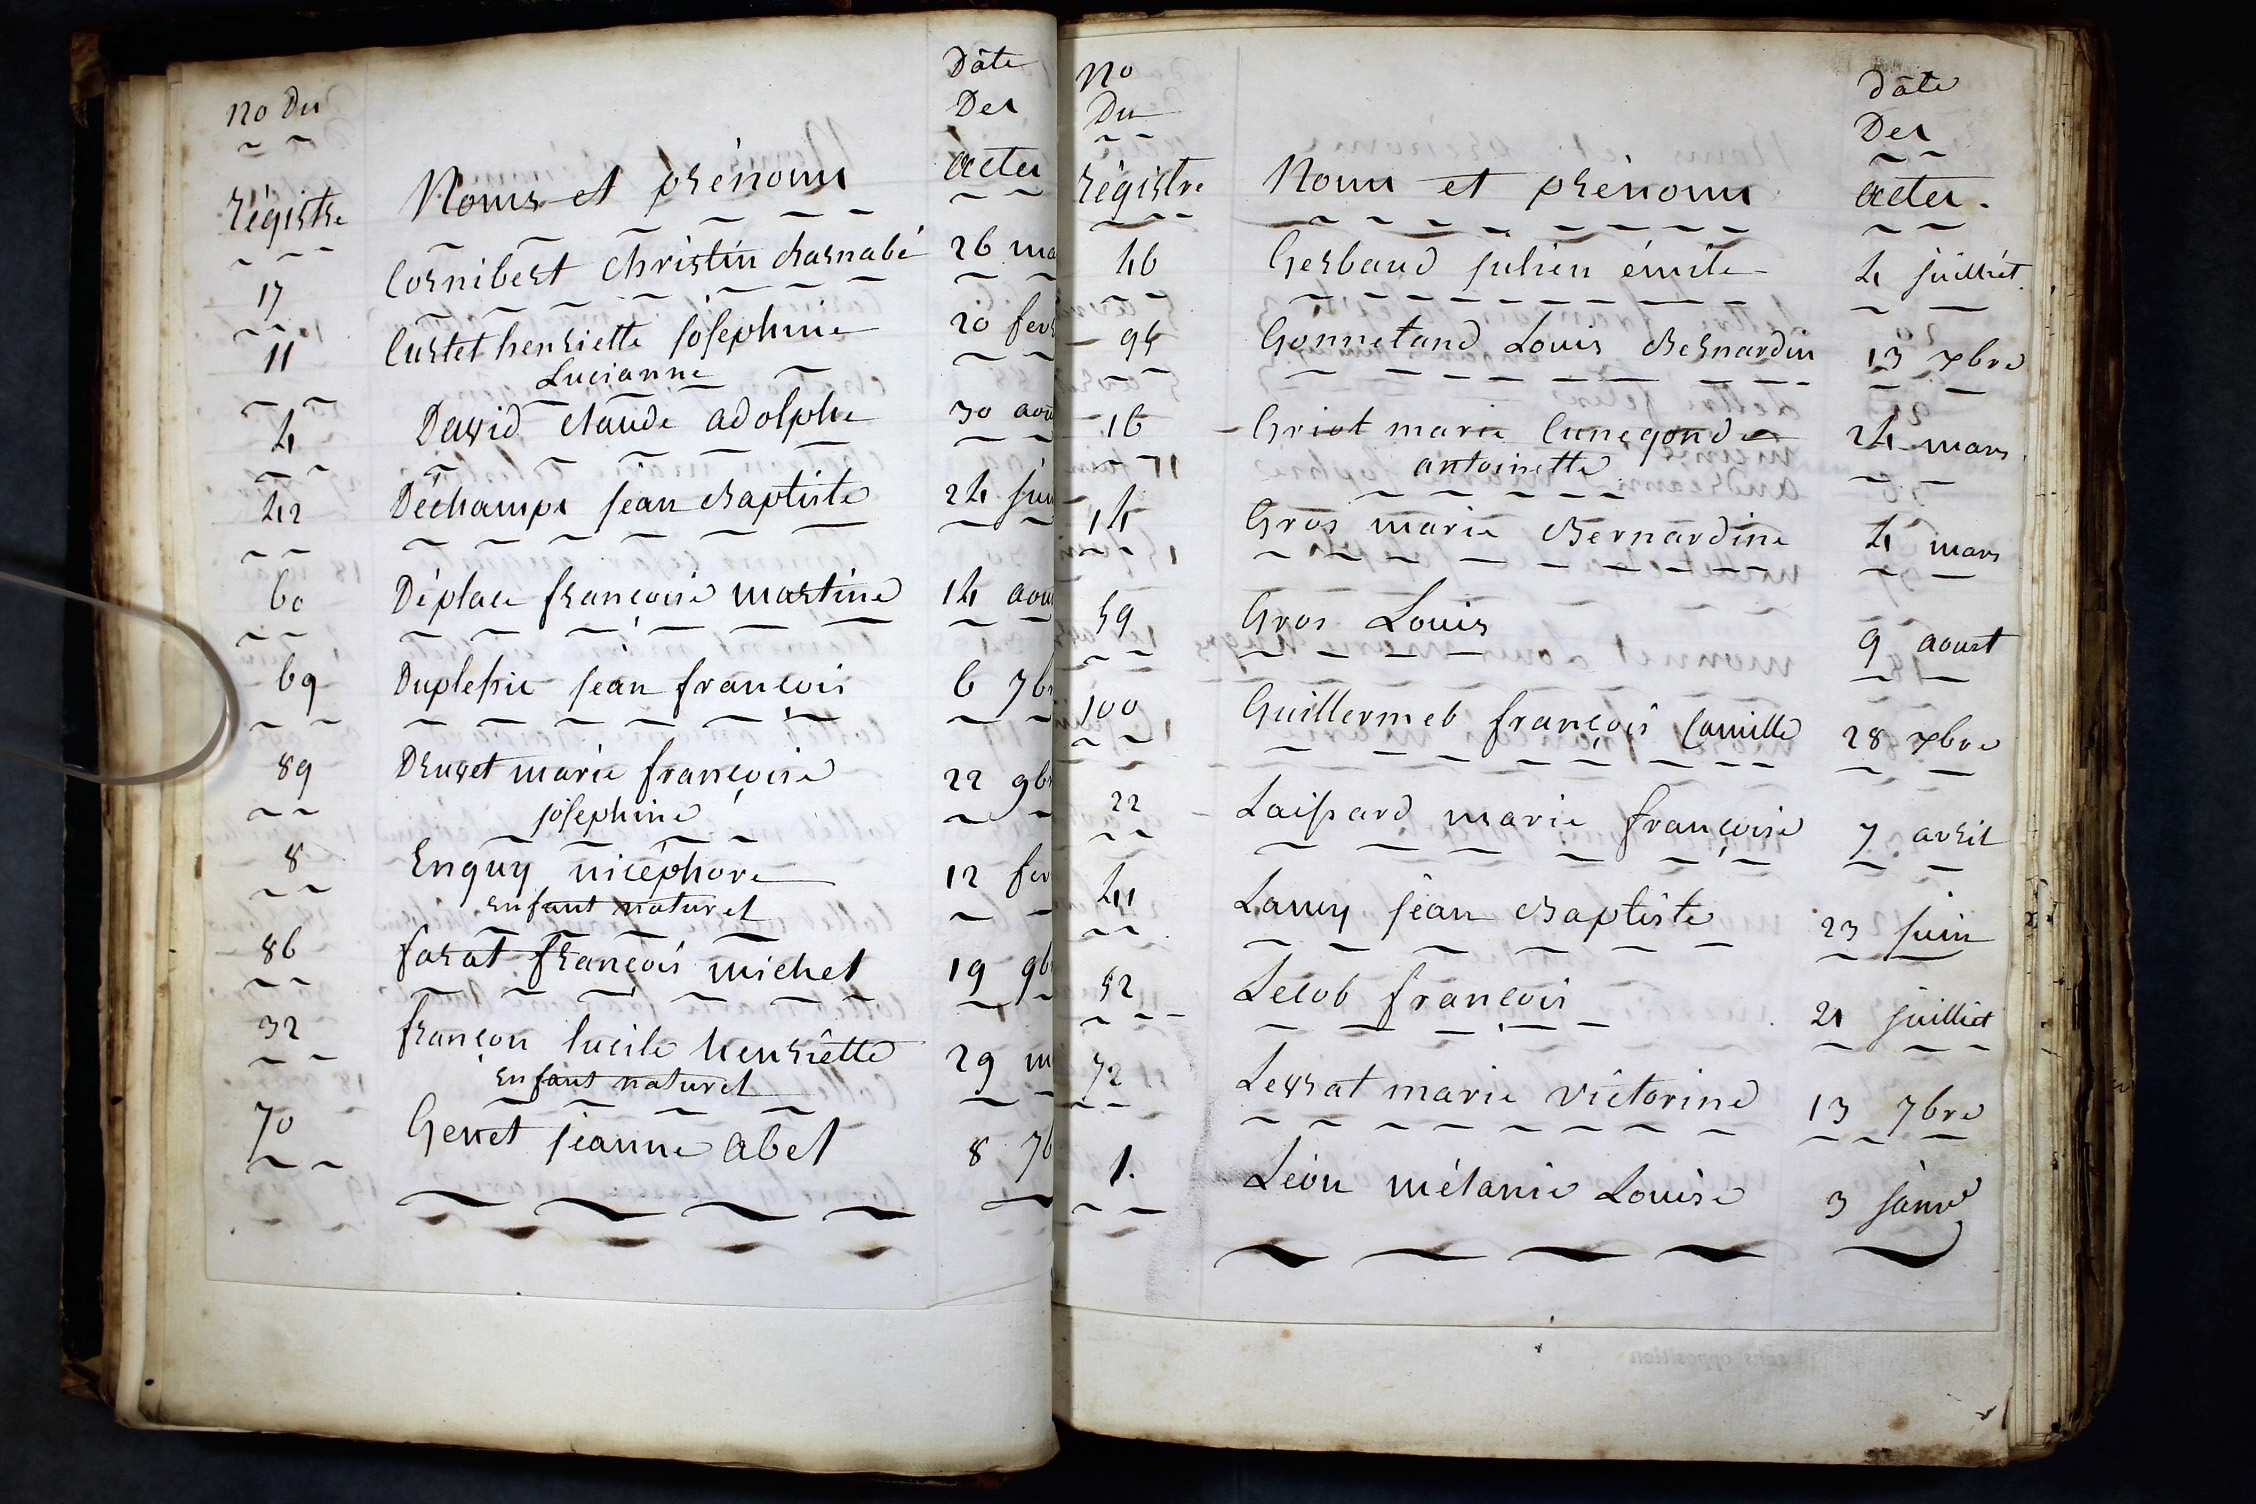 No Du
Régistre
Noms et prénoms
Dâte
Des
actes
17 Cornibert Christin Barnabé 26 ma
11 Curtet henriette joséphine 20 fev
Lucianne
4 David Claude adolphe 30 aou
42 Déchamps jean Baptiste 24 jui
60 Déplace francoise martine 14 aou
69 Duplessie jéan francois 6 7b
89 Druvet marie françoise 22 9b
joséphine
8 Enguy nicéphore 12 fev
enfant naturel
86 farat françois michel 19 9b
32 françon lucile henriette 29 m
enfant naturel
70 Genet jeanne abel 8 7b
No
Du
Régistre
Noms et prénoms
dâte
Des
actes.
46 Gerbaud julien émile 4 juilliet
94 Gonnetand Louis Bernardin 13 xbre
16 Griot marie Cunegonde 24 mars
antoinette
14 Gros marie Bernardine 4 mars
59 Gros Louis 9 aoust
100 Guillermeb françois Camille 28 xbre
22 Laissard marie françoise 7 avril
41 Lamy jean Baptiste 23 juin
52 Lecob françois 21 juilliet
72 Levrat marie victorine 13 7bre
1. Léon mélanie Louise 3 janv